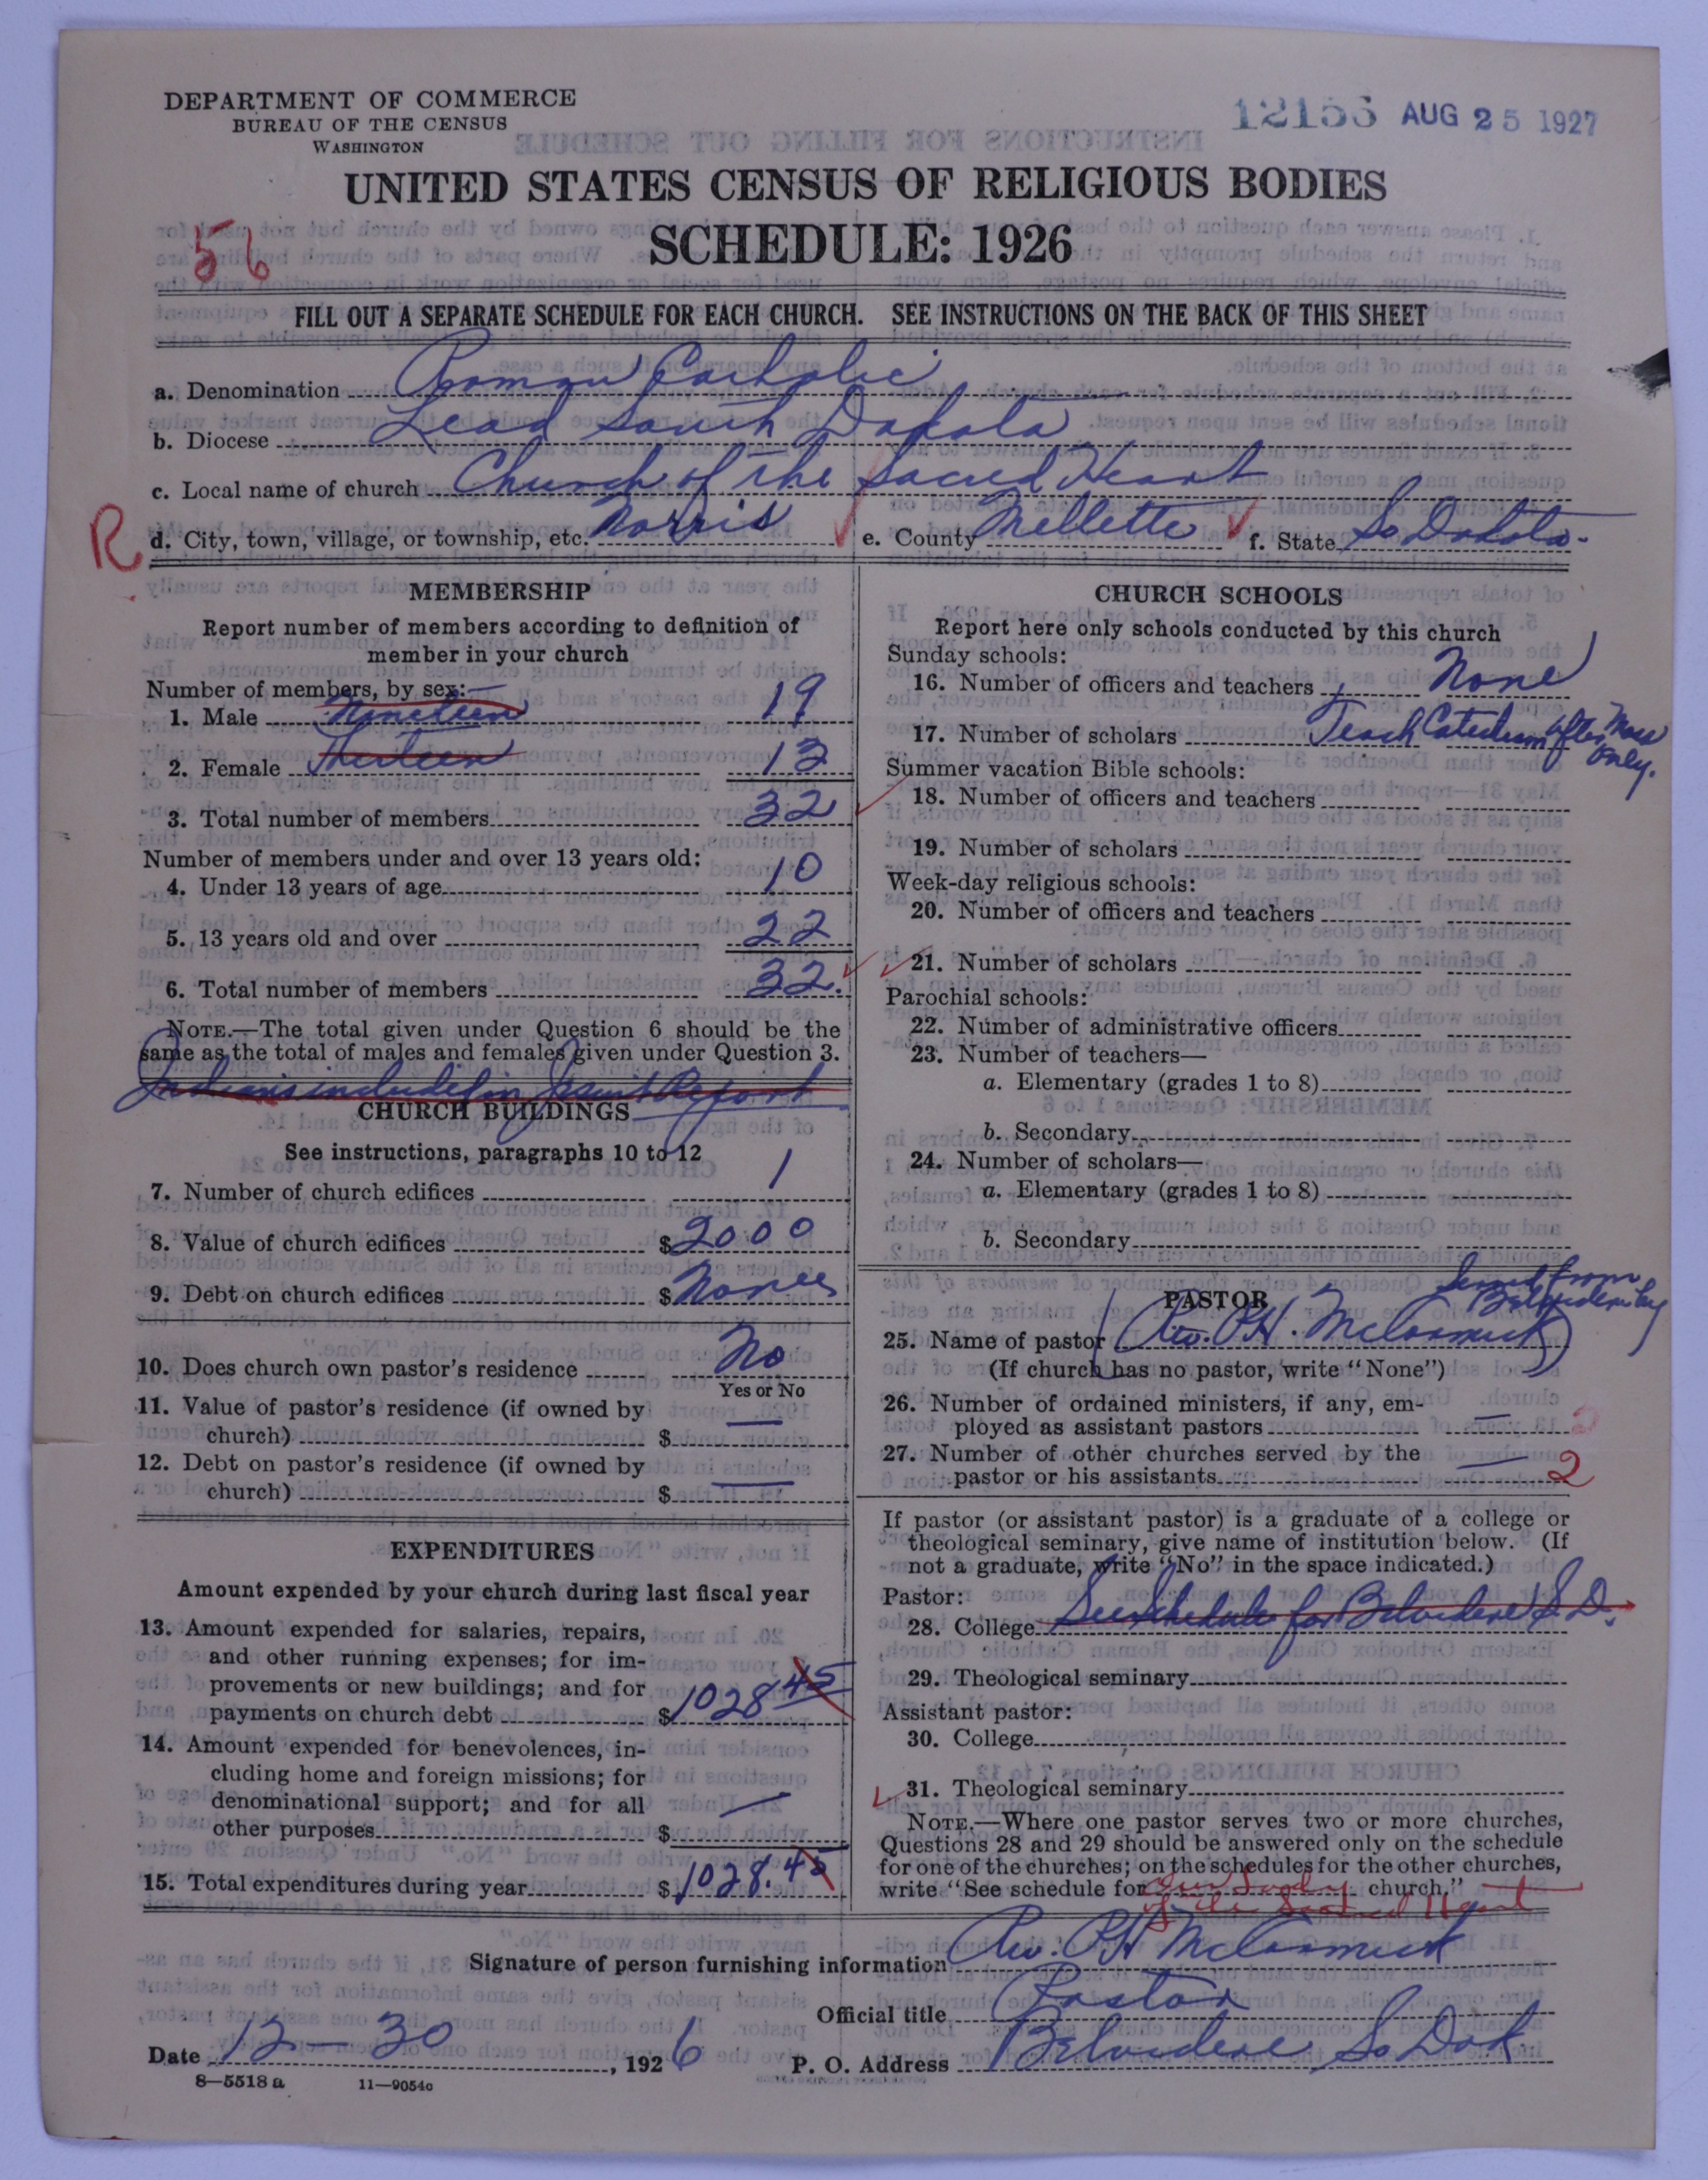 DEPARTMENT OF COMMERCE
BUREAU OF THE CENSUS
WASHINGTON
AUG 25 1927
UNITED STATES CENSUS OF RELIGIOUS BODIES
SCHEDULE: 1926
56
FILL OUT A SEPARATE SCHEDULE FOR EACH CHURCH. SEE INSTRUCTIONS ON THE BACK OF THIS SHEET
a. Denomination Roman Catholic
b. Diocese Lead South Dakota
c. Local name of church Church of the Sacred Heart
R
d. City, town, village, or township, etc. Norris e. County Mellette f. State So Dakota
MEMBERSHIP
Report number of members according to definition of
member in your church
Number of members, by sex:—
1. Male Nineteen 19
2. Female Thirteen 13
3. Total number of members 32
Number of members under and over 13 years old:
4. Under 13 years of age 10
5. 13 years old and over 22
6. Total number of members 32.
NOTE.—The total given under Question 6 should be the
same as the total of males and females given under Question 3.
Indians included in Jesuit Report
CHURCH BUILDINGS
See instructions, paragraphs 10 to 12
7. Number of church edifices 1
8. Value of church edifices $2000
9. Debt on church edifices $ None
10. Does church own pastor's residence No
Yes or No
11. Value of pastor's residence (if owned by
church) $ —
12. Debt on pastor's residence (if owned by
church) $ —
EXPENDITURES
Amount expended by your church during last fiscal year
13. Amount expended for salaries, repairs,
and other running expenses; for im-
provements or new buildings; and for
payments on church debt $1028 45
14. Amount expended for benevolences, in-
cluding home and foreign missions; for
denominational support; and for all
other purposes $ —
15. Total expenditures during year $1028.45
CHURCH SCHOOLS
Report here only schools conducted by this church
Sunday schools:
16. Number of officers and teachers None
17. Number of scholars Teach Catechism after Mass
only.
Summer vacation Bible schools:
18. Number of officers and teachers
19. Number of scholars
Week-day religious schools:
20. Number of officers and teachers
21. Number of scholars
Parochial schools:
22. Number of administrative officers
23. Number of teachers—
a. Elementary (grades 1 to 8)
b. Secondary
24. Number of scholars—
a. Elementary (grades 1 to 8)
b. Secondary
Served from
Belvidere by
PASTOR
25. Name of pastor (Rev. P.H. McCormick)
(If church has no pastor, write "None")
26. Number of ordained ministers, if any, em-
ployed as assistant pastors —
27. Number of other churches served by the
pastor or his assistants — 2
If pastor (or assistant pastor) is a graduate of a college or
theological seminary, give name of institution below. (If
not a graduate, write "No" in the space indicated.)
Pastor:
28. College See Schedule for Belvidere S.D.
29. Theological seminary
Assistant pastor:
30. College
31. Theological seminary
NOTE.—Where one pastor serves two or more churches,
Questions 28 and 29 should be answered only on the schedule
for one of the churches; on the schedules for the other churches,
write "See schedule for Our Lady church."
of the Sacred Heart
Signature of person furnishing information Rev. P.H. McCormick
Official title Pastor
Date 12-30, 1926 P. O. Address Belvidere So Dak
8—5518 a 11—9054c